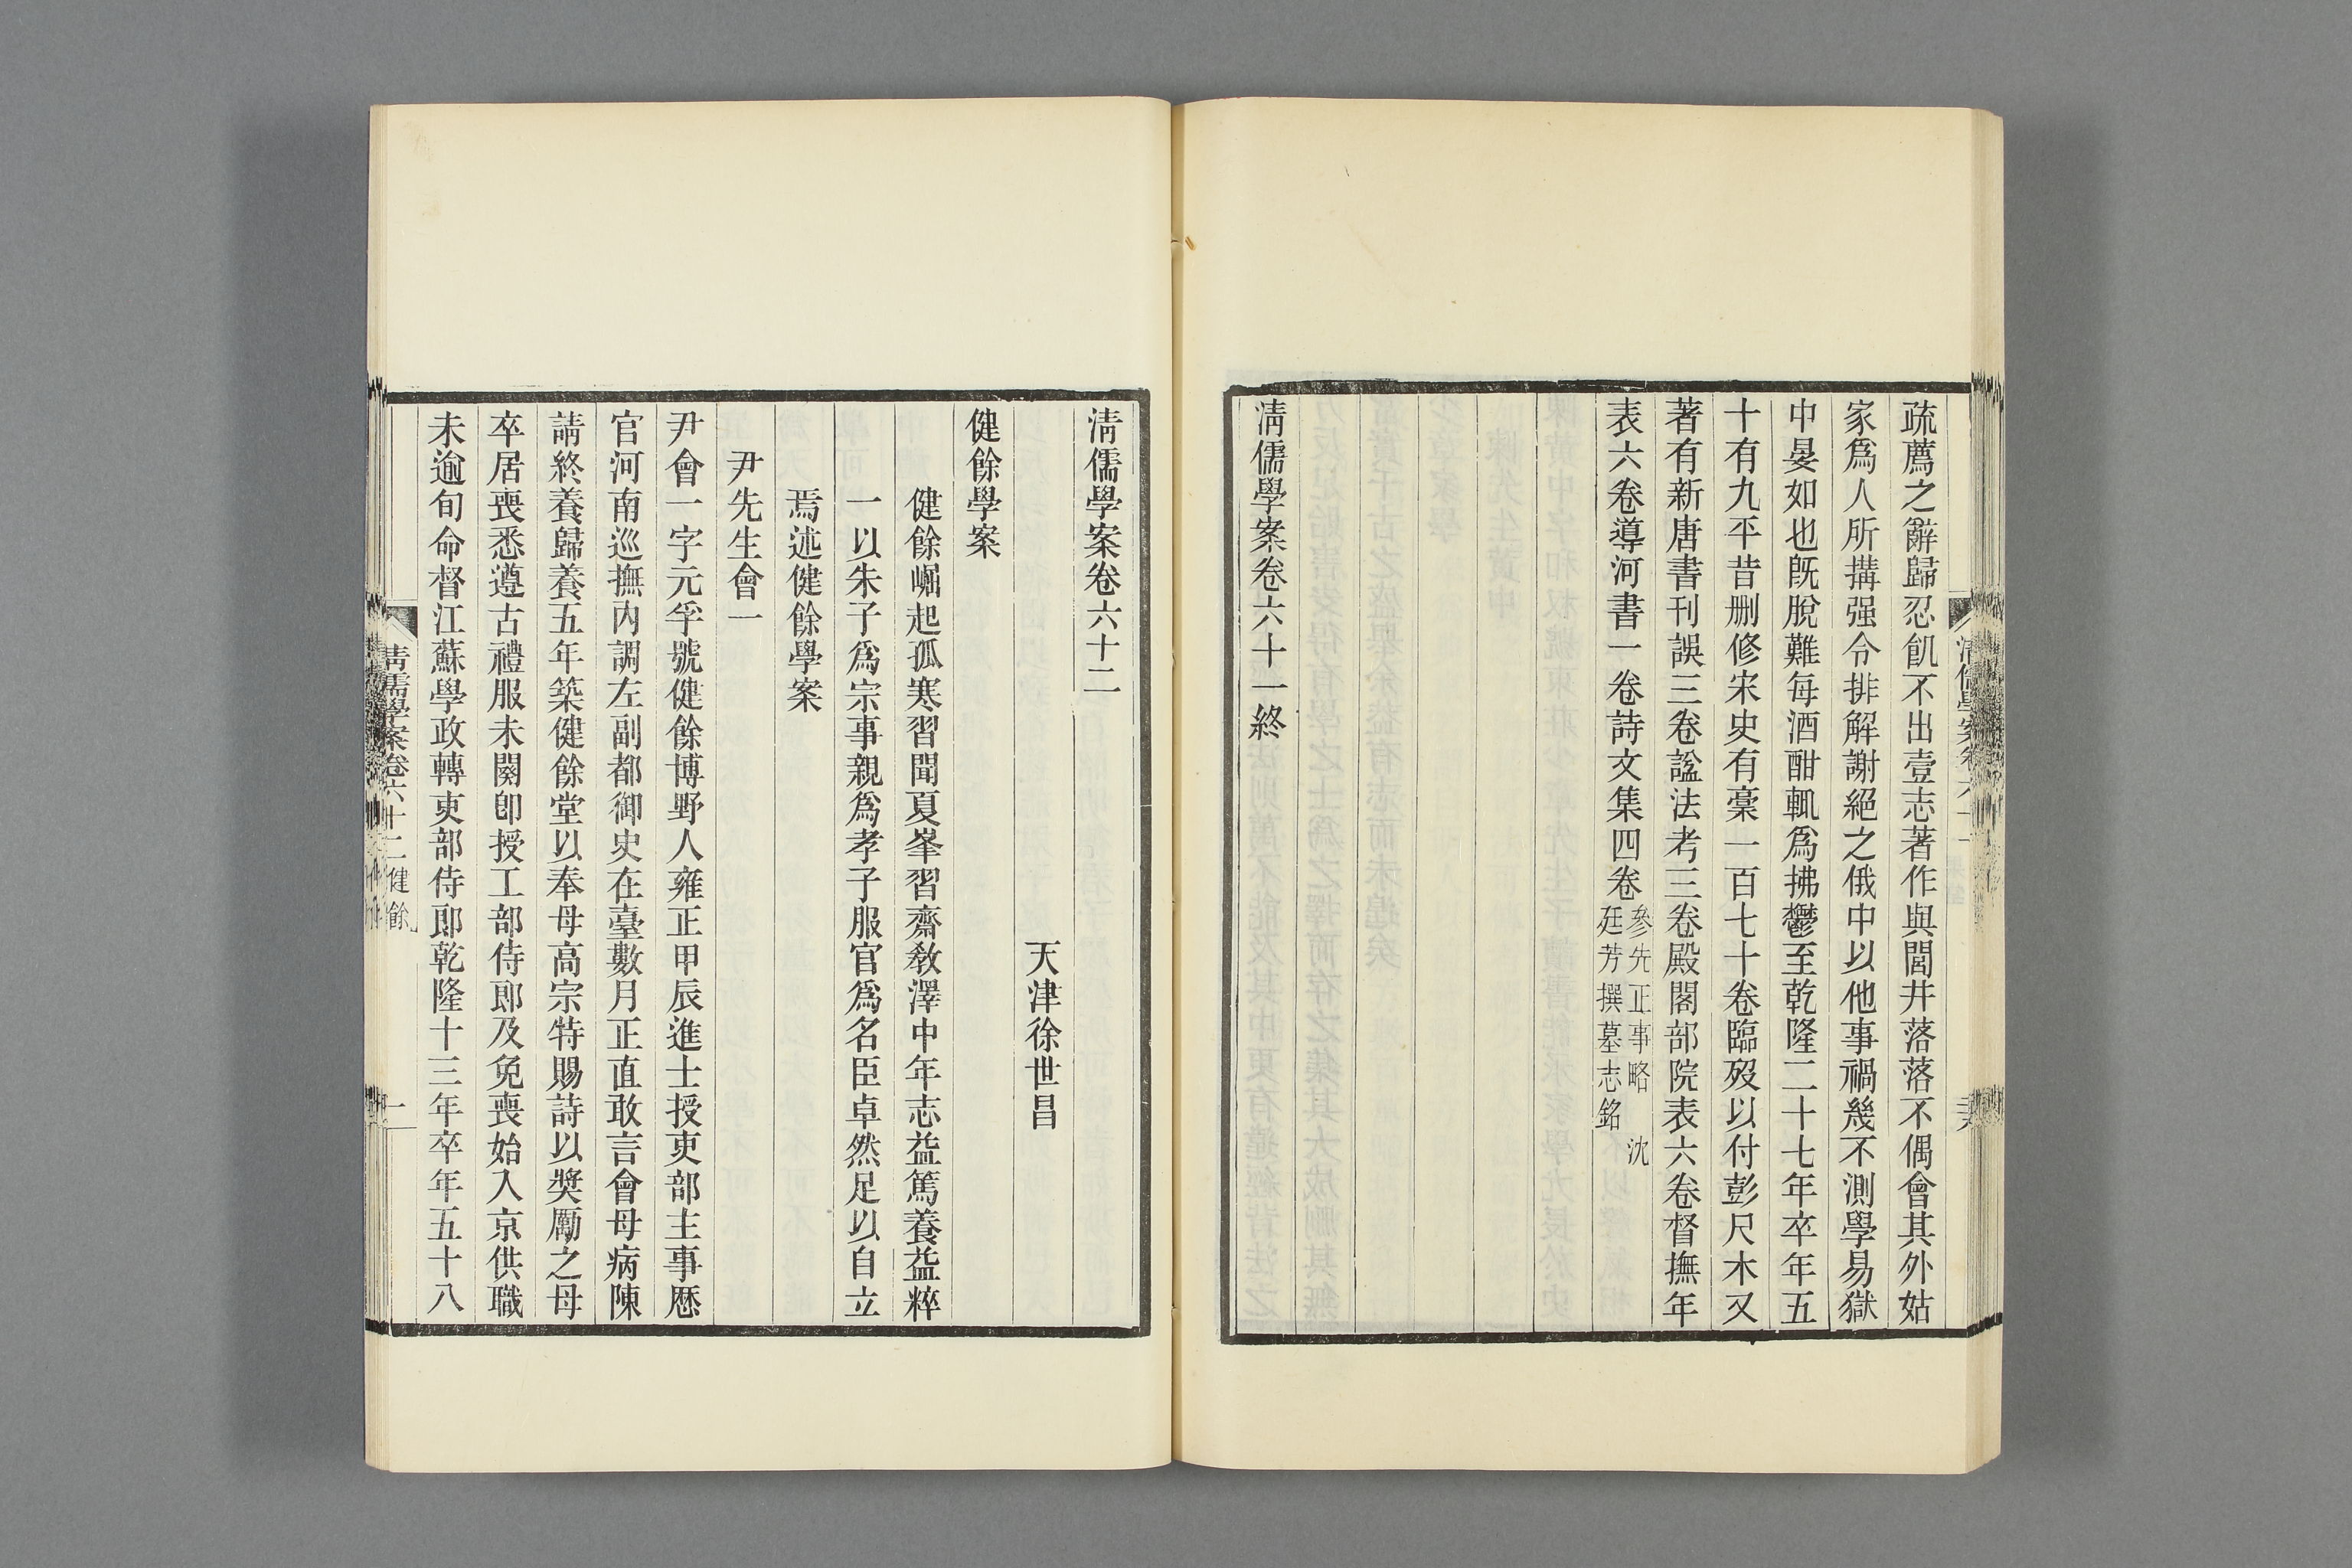 疏薦之辭歸忍飢不出壹志著作與閭井落落不偶會其外姑
家爲人所搆强令排解謝絕之俄中以他事禍幾不測學易獄
中晏如也旣脫難每酒酣輒爲拂鬱至乾隆二十七年卒年五
十有九平昔删修宋史有稾一百七十卷臨歿以付彭尺木又
著有新唐書刊誤三卷諡法考三卷殿閣部院表六卷督撫年
表六卷導河書一卷詩文集四卷
參先正事略　沈
廷芳撰墓志銘
淸儒學案卷六十一終
淸儒學案卷六十二
天津徐世昌
健餘學案
健餘崛起孤寒習聞夏峯習齋敎澤中年志益篤養益粹
一以朱子爲宗事親爲孝子服官爲名臣卓然足以自立
焉述健餘學案
尹先生會一
尹會一字元孚號健餘博野人雍正甲辰進士授吏部主事歷
官河南巡撫內調左副都御史在臺數月正直敢言會母病陳
請終養歸養五年築健餘堂以奉母高宗特賜詩以獎勵之母
卒居喪悉遵古禮服未闋卽授工部侍郎及免喪始入京供職
未逾旬命督江蘇學政轉吏部侍郎乾隆十三年卒年五十八
淸儒學案卷六十二　健餘
一